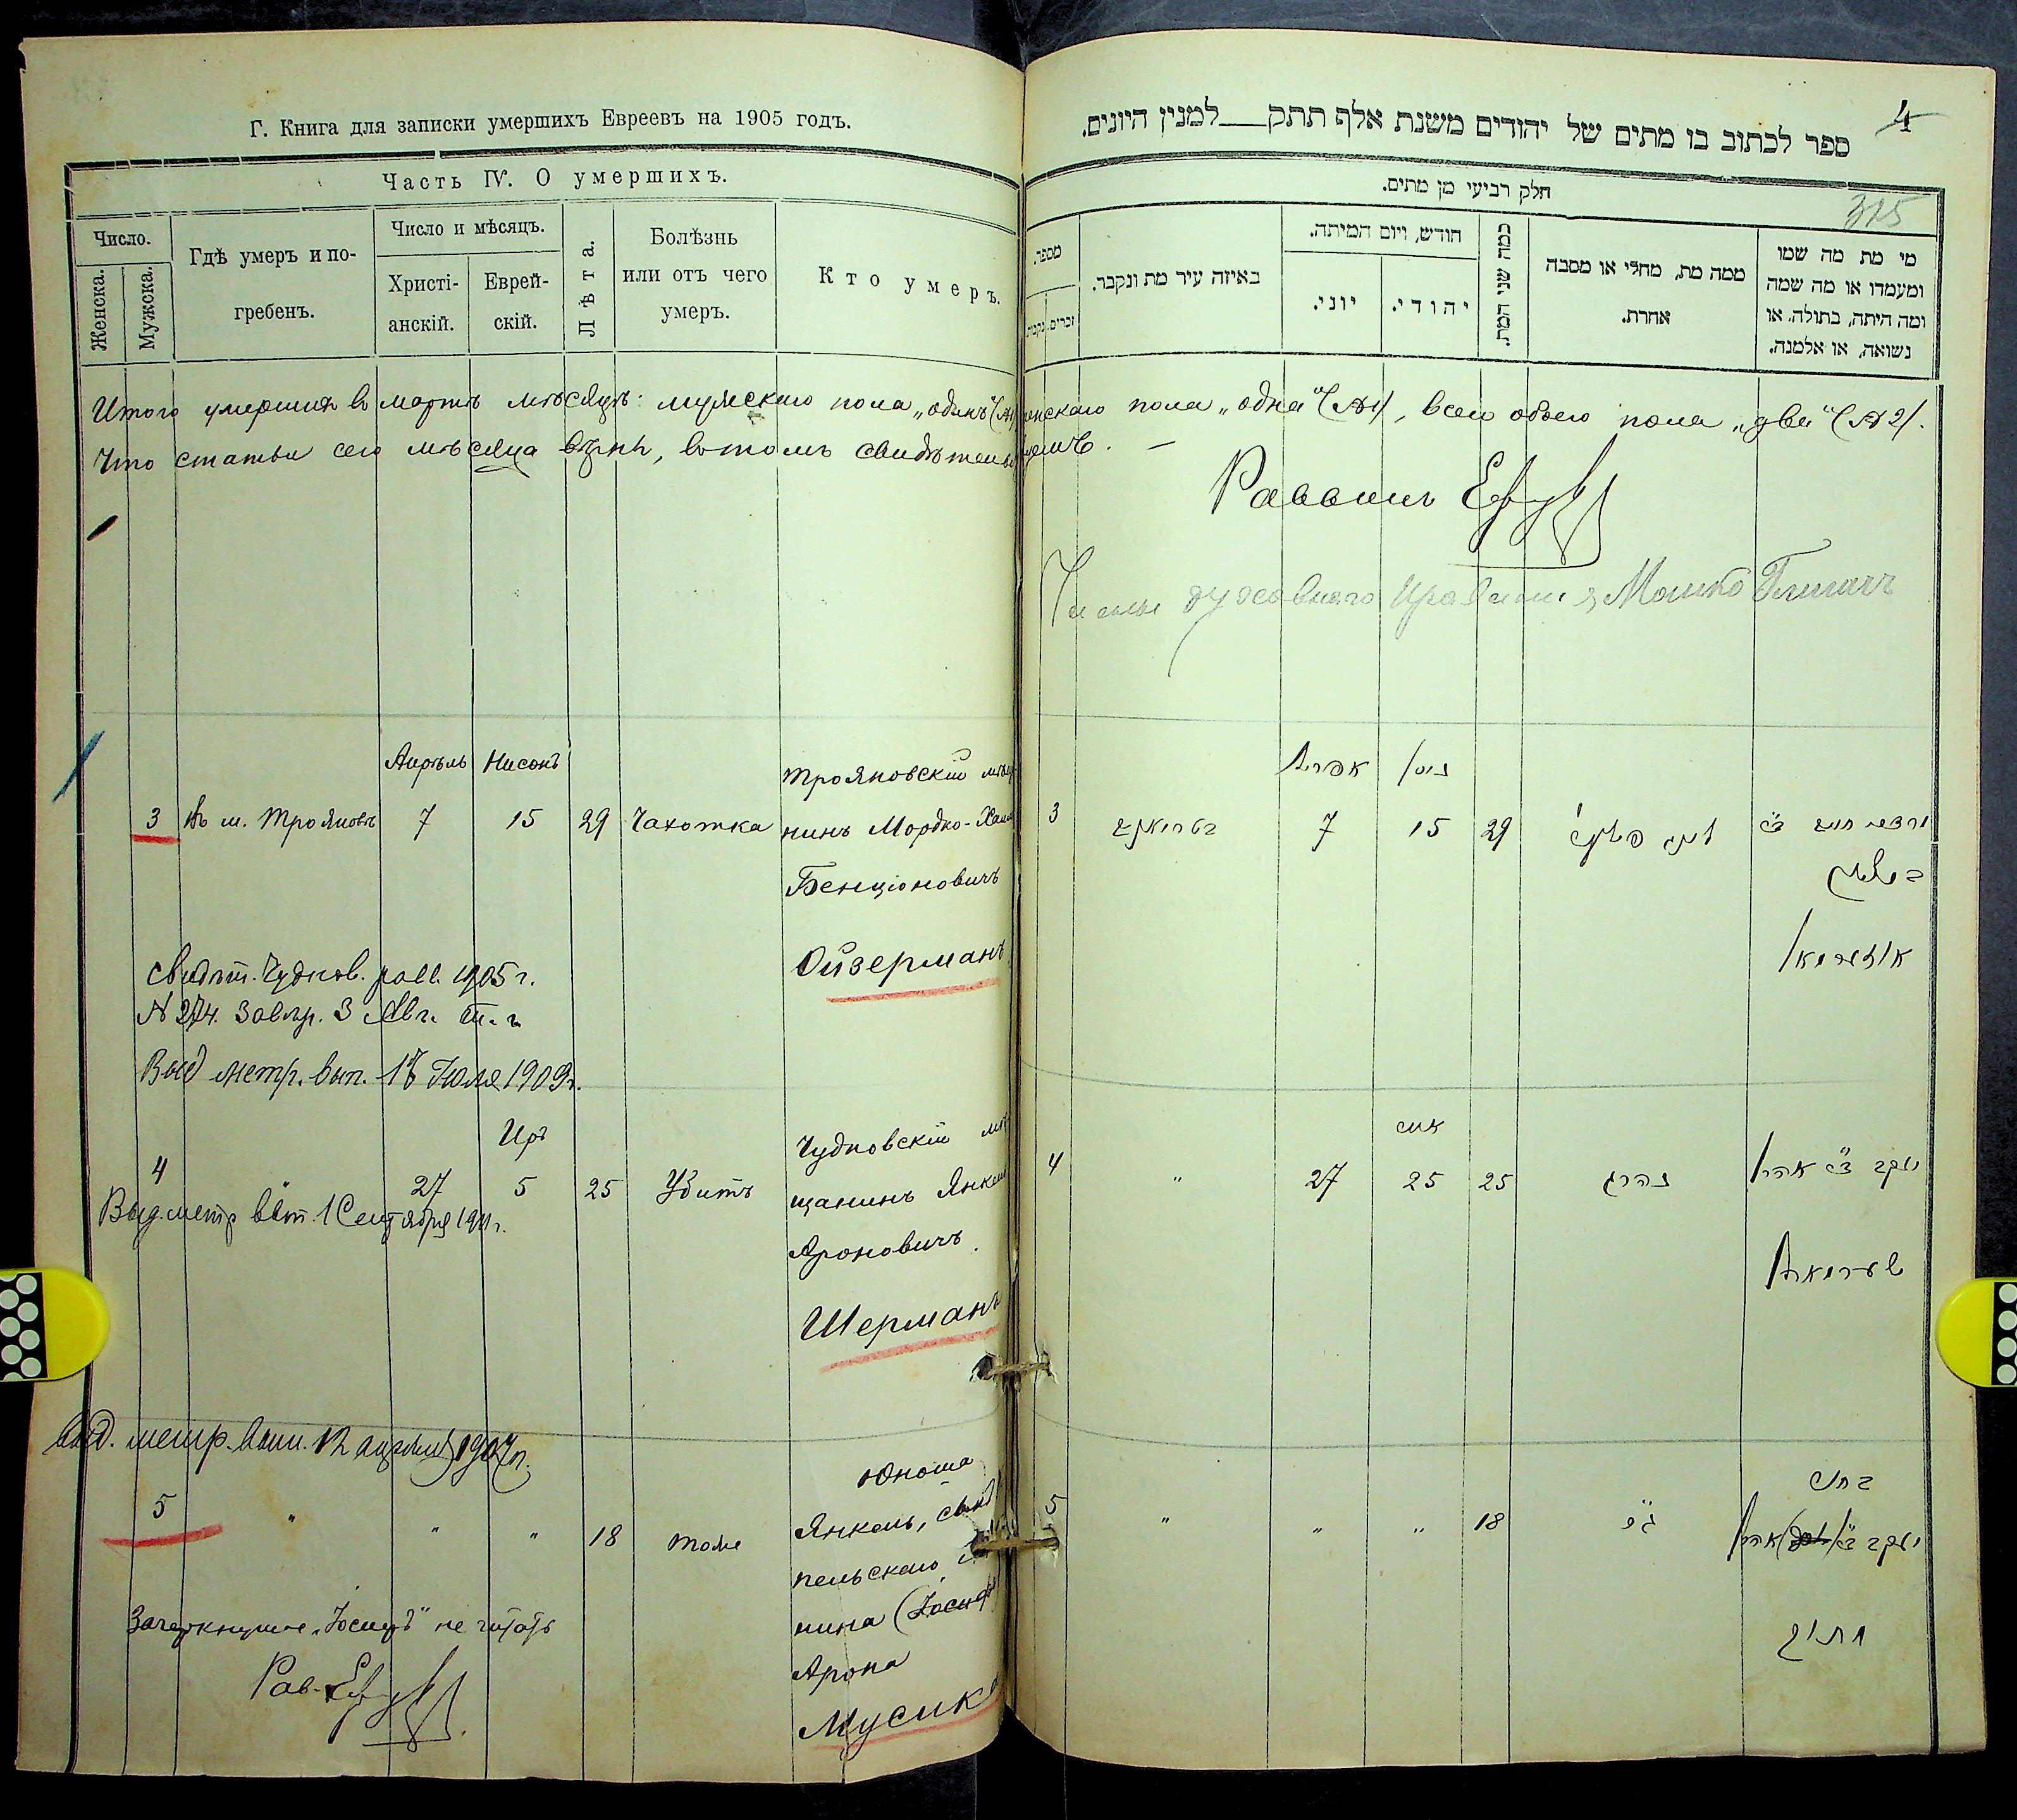 Г. Книга для записки умершихъ Евреевъ на 1905 годъ.
Часть IV. О умершихъ.
Число.
Женска.
Мужска.
Гдѣ умеръ и по-
гребенъ.
Число и мѣсяцъ.
Христі-
анскій.
Еврей-
скій.
Лѣта.
Болѣзнь
или отъ чего
умеръ.
Кто умеръ.
4
ספר לכתוב בו מתים של יהודים משנת אלף תתק___למנין היונים.
חלק רביעי מן מתים.
315
מספר.
זכרים. נקבות
באיזה עיר מת ונקבר.
חודש, ויום המיתה.
יוני.
יהודי.
כמה שני המת.
ממה מת, מחלי או מסבה
אחרת.
מי מת מה שמו
ומעמדו או מה שמה
ומה היתה, בתולה, או
נשואה, או אלמנה.
Итого умершихъ въ мартѣ мѣсяцѣ: мужскаго пола „одинъ" (№1) женскаго пола „одна" (№1), всего обоего пола „два" (№2).
Что статьи сего мѣсяца вѣрны, въ томъ свидѣтельствуемъ. —
Раввинъ
Члены духовнаго Правленія Мошко
Апрѣль Нисонъ
3 въ м. Трояновѣ 7 15 29 Чахотка
Трояновскій мѣща
нинъ Мордко-Хаим
Бенціоновичъ
Ойзерманъ
Свидѣт. Чуднов. равв. 1905 г.
N 274. 3 Авг.
Выд метр. вып. Іюля 1909 г.
Иръ
4 " 27 5 25 Убитъ
Чудновскій мѣ
щанинъ Янкель
Ароновичъ.
Шерманъ
Выд. метр вып. 1 Сентября 1911 г.
Выд. метр. вып. 12 апрѣля 1907 г.
5 " " " 18 тоже
Юноша
Янкель, сынъ
пельскаго
нина (Іосифа
Арона
Мусикъ
Зачеркнутое „Іосифъ" не читать
Рав.
ניסן אפריל
3 7 15 29
מרדכי חיים ב"ר
בן ציון
אייר
4 " 27 25 25 נהרג יעקב ב"ר אהרן
שערמאן
5 " " " 18 הבחור
יעקב ב"ר אהרן